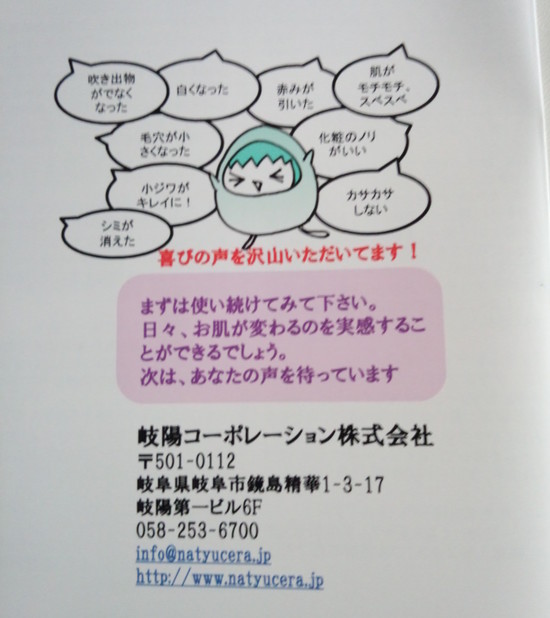 吹き出物
がでなく
なった
白くなった
赤みが
引いた
肌が
モチモチ、
スベスベ
毛穴が小
さくなった
化粧のノリ
がいい
小ジワが
キレイに！
カサカサ
しない
シミが
消えた
喜びの声を沢山いただいてます！
まずは使い続けてみて下さい。
日々、お肌が変わるのを実感するこ
とができるでしょう。
次は、あなたの声を待っています
岐陽コーポレーション株式会社
〒501-0112
岐阜県岐阜市鏡島精華1-3-17
岐陽第一ビル6F
058-253-6700
info@natyucera.jp
http://www.natyucera.jp